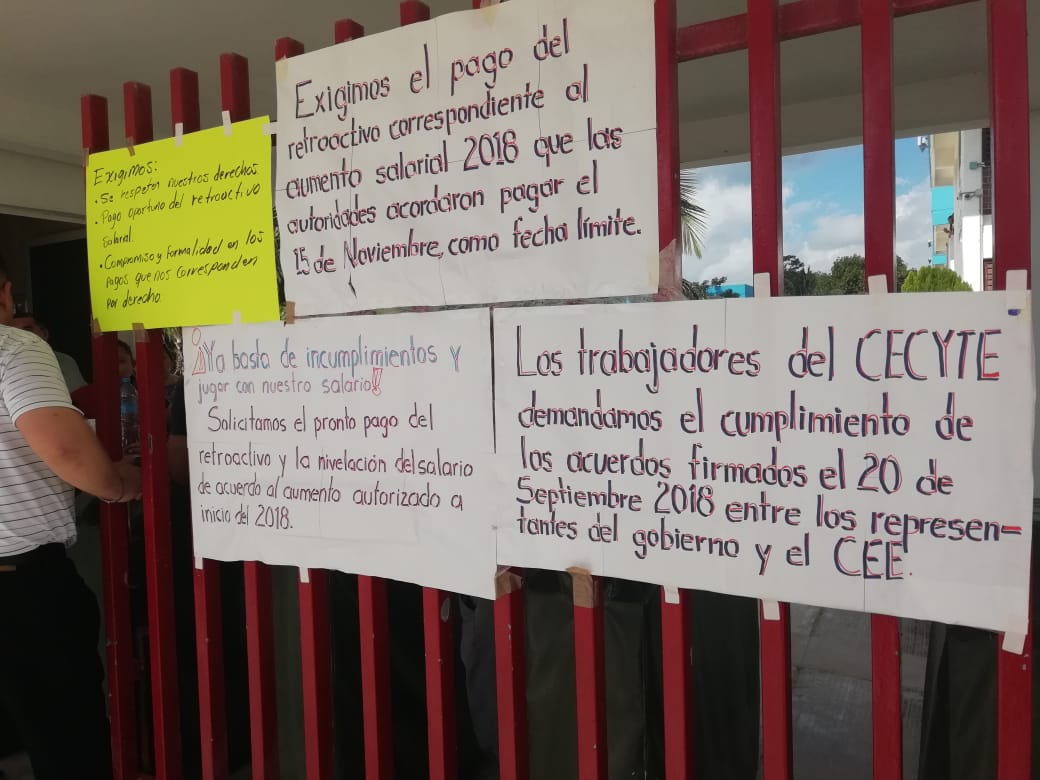 Exigimos:
• Se respeten nuestros derechos
• Pago oportuno del retroactivo
salarial.
• Compromiso y formalidad en los
pagos que nos corresponden
por derecho.
Exigimos el pago del
retroactivo correspondiente al
aumento salarial 2018 que las
autoridades acordaron pagar el
15 de Noviembre, como fecha límite.
¡Ya basta de incumplimientos y
jugar con nuestro salario!
Solicitamos el pronto pago del
retroactivo y la nivelación del salario
de acuerdo al aumento autorizado a
inicio del 2018.
Los trabajadores del CECYTE
demandamos el cumplimiento de
los acuerdos firmados el 20 de
Septiembre 2018 entre los represen=
tantes del gobierno y el CEE.